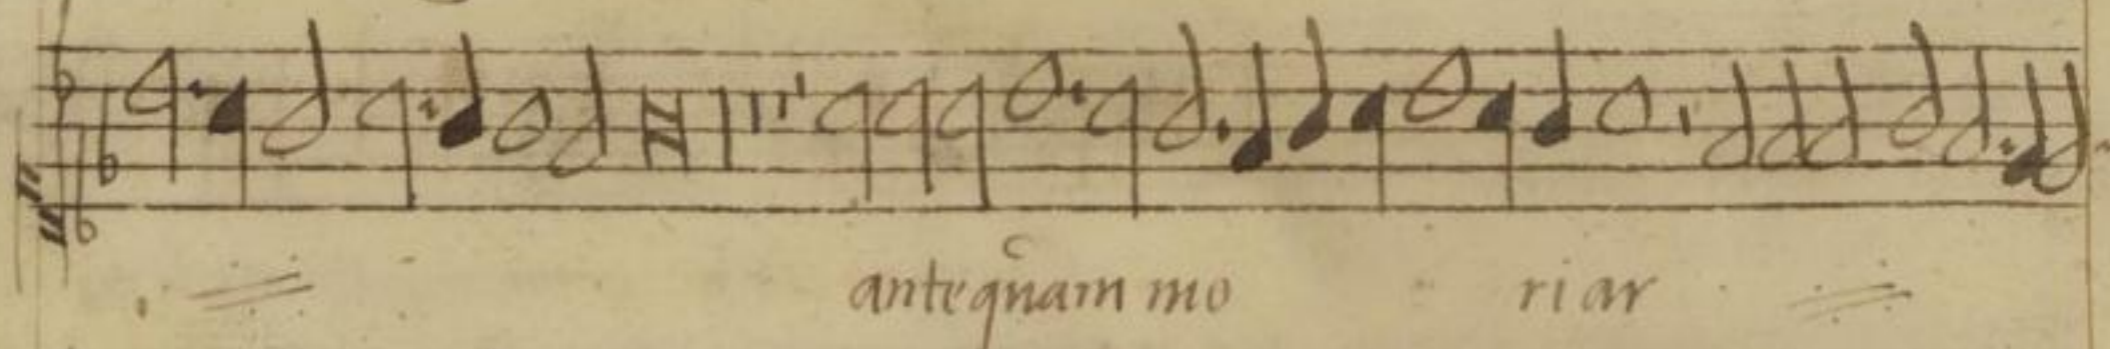 antequam mo riar